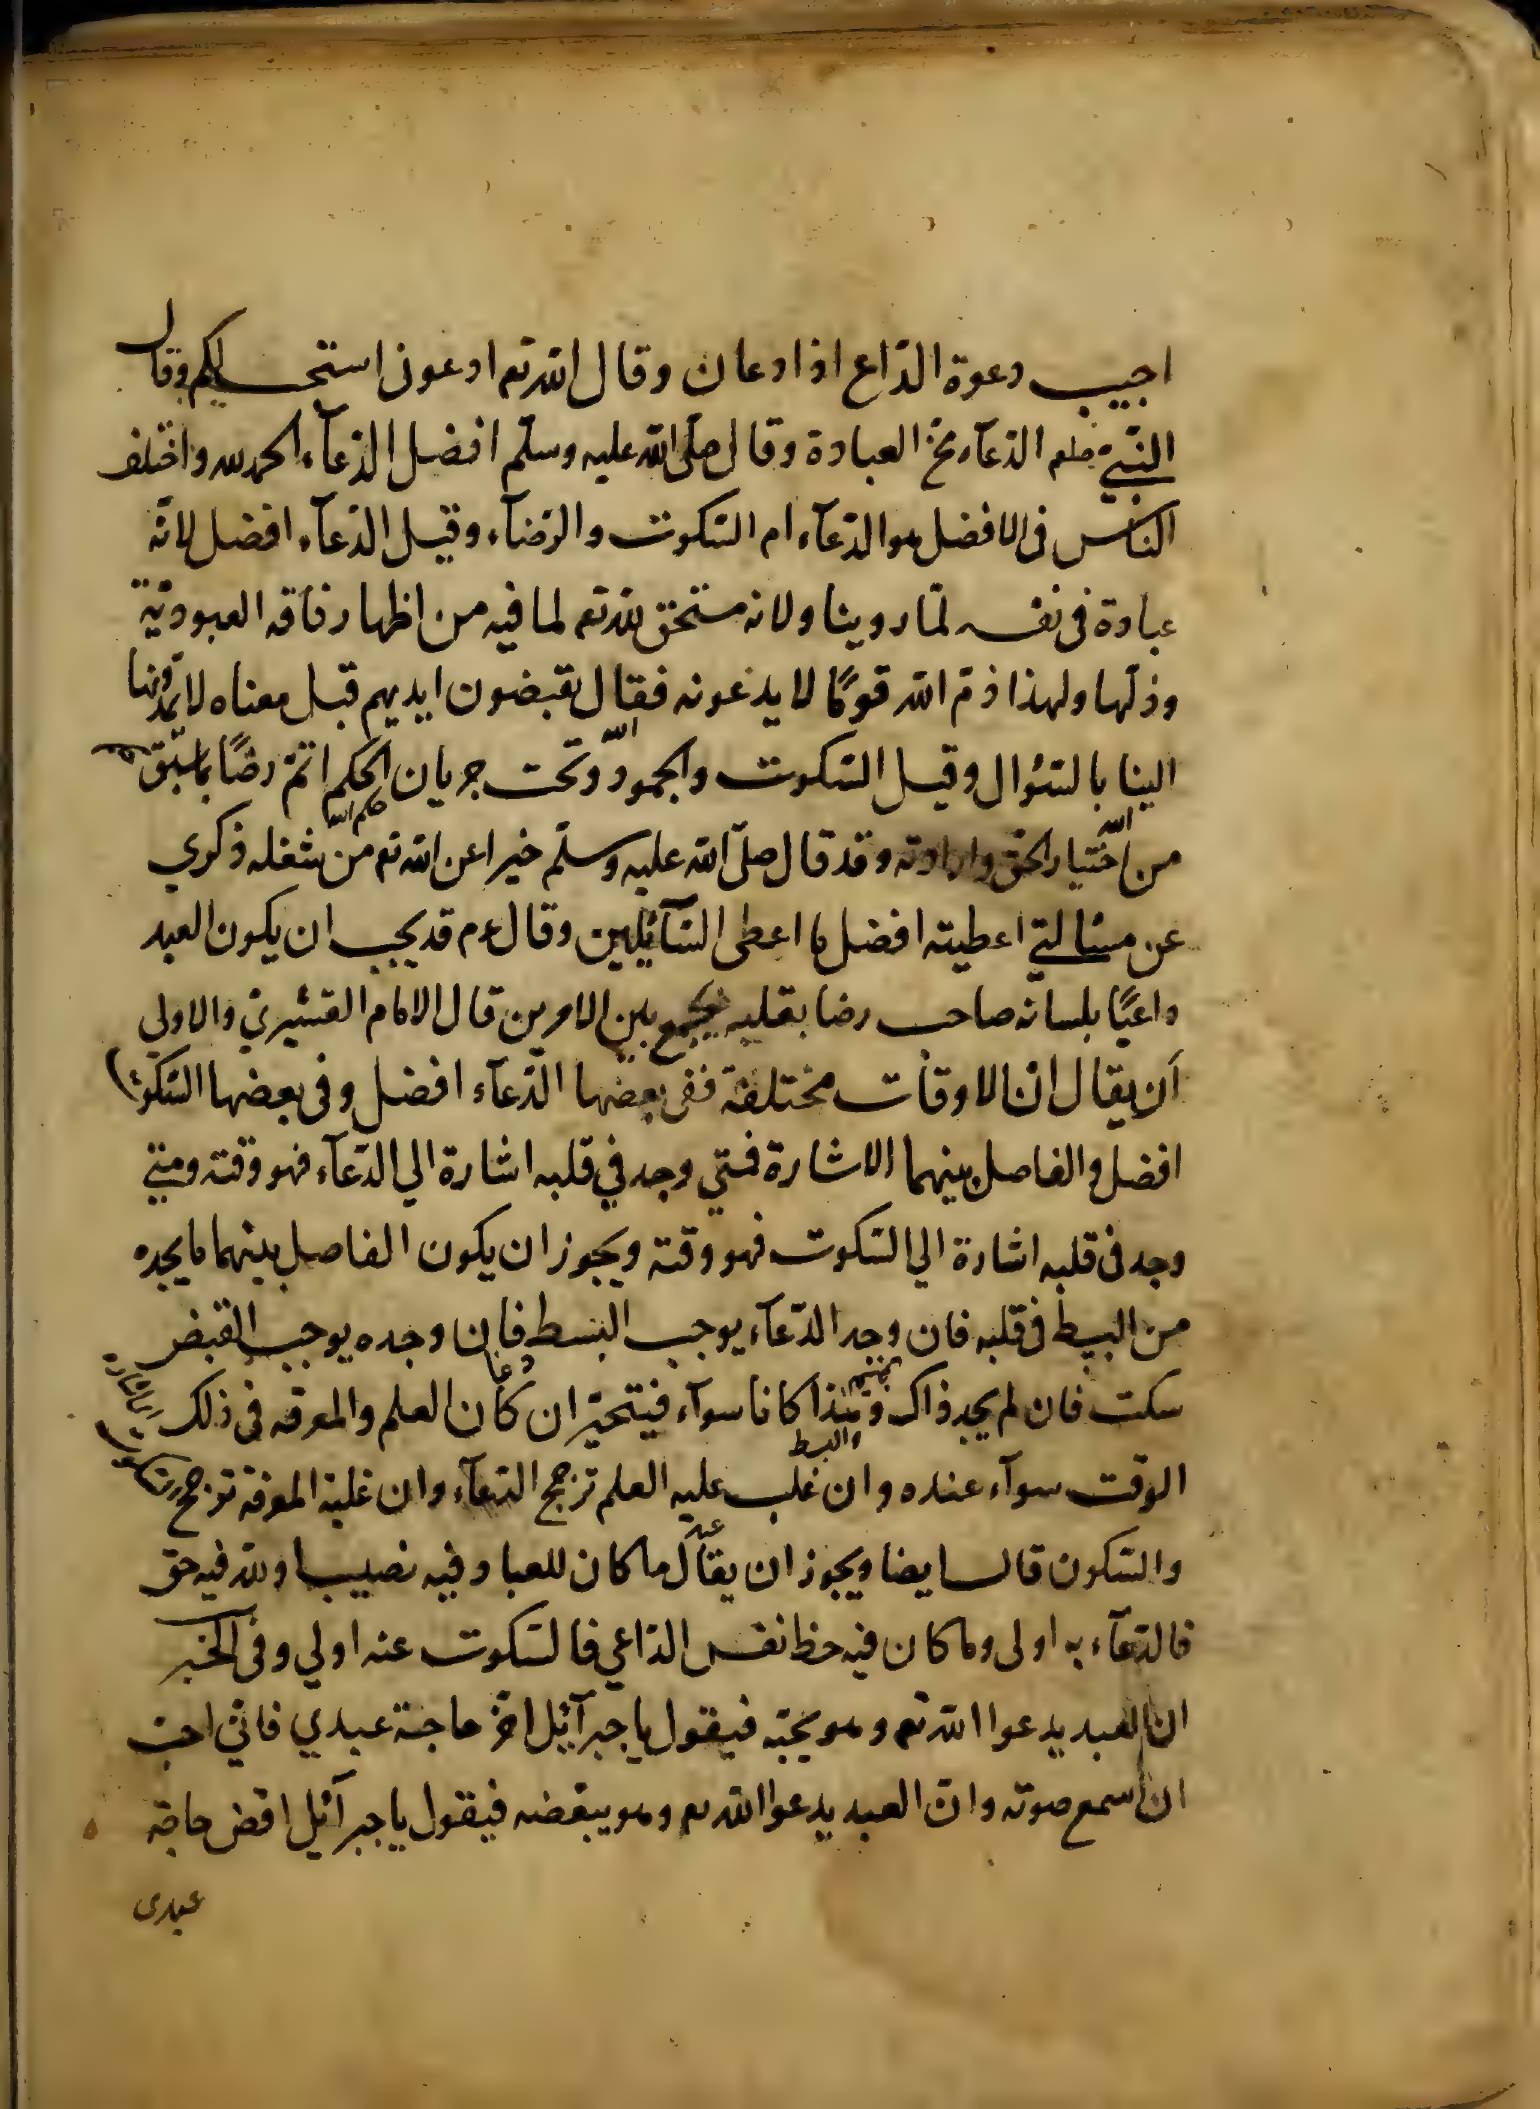 اجيب دعوة الدّاع اذا دعان وقال الله تع ادعون استجب لكم وقال
النّبيّ صلعم الدّعآء مخّ العبادة وقال صلّى الله عليه وسلّم افضل الدّعآء الحمد لله واختلف
الناس فى الافضل هو الدّعآء ام السّكوت والرّضآء وقيل الدّعآء افضل لانّه
عبادة فى نفسه لمّا روينا ولانه مستحق لله تع لما فيه من اظهار فاقه العبوديّة
وذلّها ولهذا ذمّ الله قومًا لا يدعونه فقال يقبضون ايديهم قيل معناه لا يمدّونها
الينا بالسّؤال وقيل السّكوت والجمود تحت جريان الحكم اتمّ رضًا بما سبق
من اختيار الحق وارادته وقد قال صلّى الله عليه وسلّم خبرا عن الله تع من شغله ذكري
عن مسئالتي اعطيته افضل ما اعطى السّآئلين وقال عم قد يجب ان يكون العبد
داعيًا بلسانه صاحب رضا بقلبه فيجمع بين الامرين قال الامام القشيريّ والاولى
أن يقال انّ الاوقات مختلفة ففى بعضها الدّعآء افضل وفى بعضها السّكوت
افضل والفاصل بينهما الاشارة فمتي وجد في قلبه اشارة الي الدّعآء فهو وقته ومتي
وجد فى قلبه اشارة الي السّكوت فهو وقته ويجوز ان يكون الفاصل بينهما ما يجده
من البسط فى قلبه فان وجد الدّعآء يوجب البسط دعا فان وجده يوجب القبض
سكت فان لم يجد ذاك كانا سوآء فيتخيّر ان كان العلم والمعرفه فى ذلك
الوقت سوآء عنده وان غلب عليه العلم ترجح الدّعآء وان غلبة المعرفة ترجح
والسّكون قال ايضا ويجوز ان يقال ما كان للعباد فيه نصيب او لله فيه حق
فالدّعآء به اولى وما كان فيه حظ نفس الدّاعي فالسّكوت عنه اولي وفى الخبر
ان العبد يدعوا الله تع وهو يحبّه فيقول يا جبرآئيل اخّر حاجة عبدي فانّي احبّ
ان اسمع صوته وانّ العبد يدعوا الله تع وهو يبغضه فيقول يا جبرآئيل اقض حاجة
عبدى